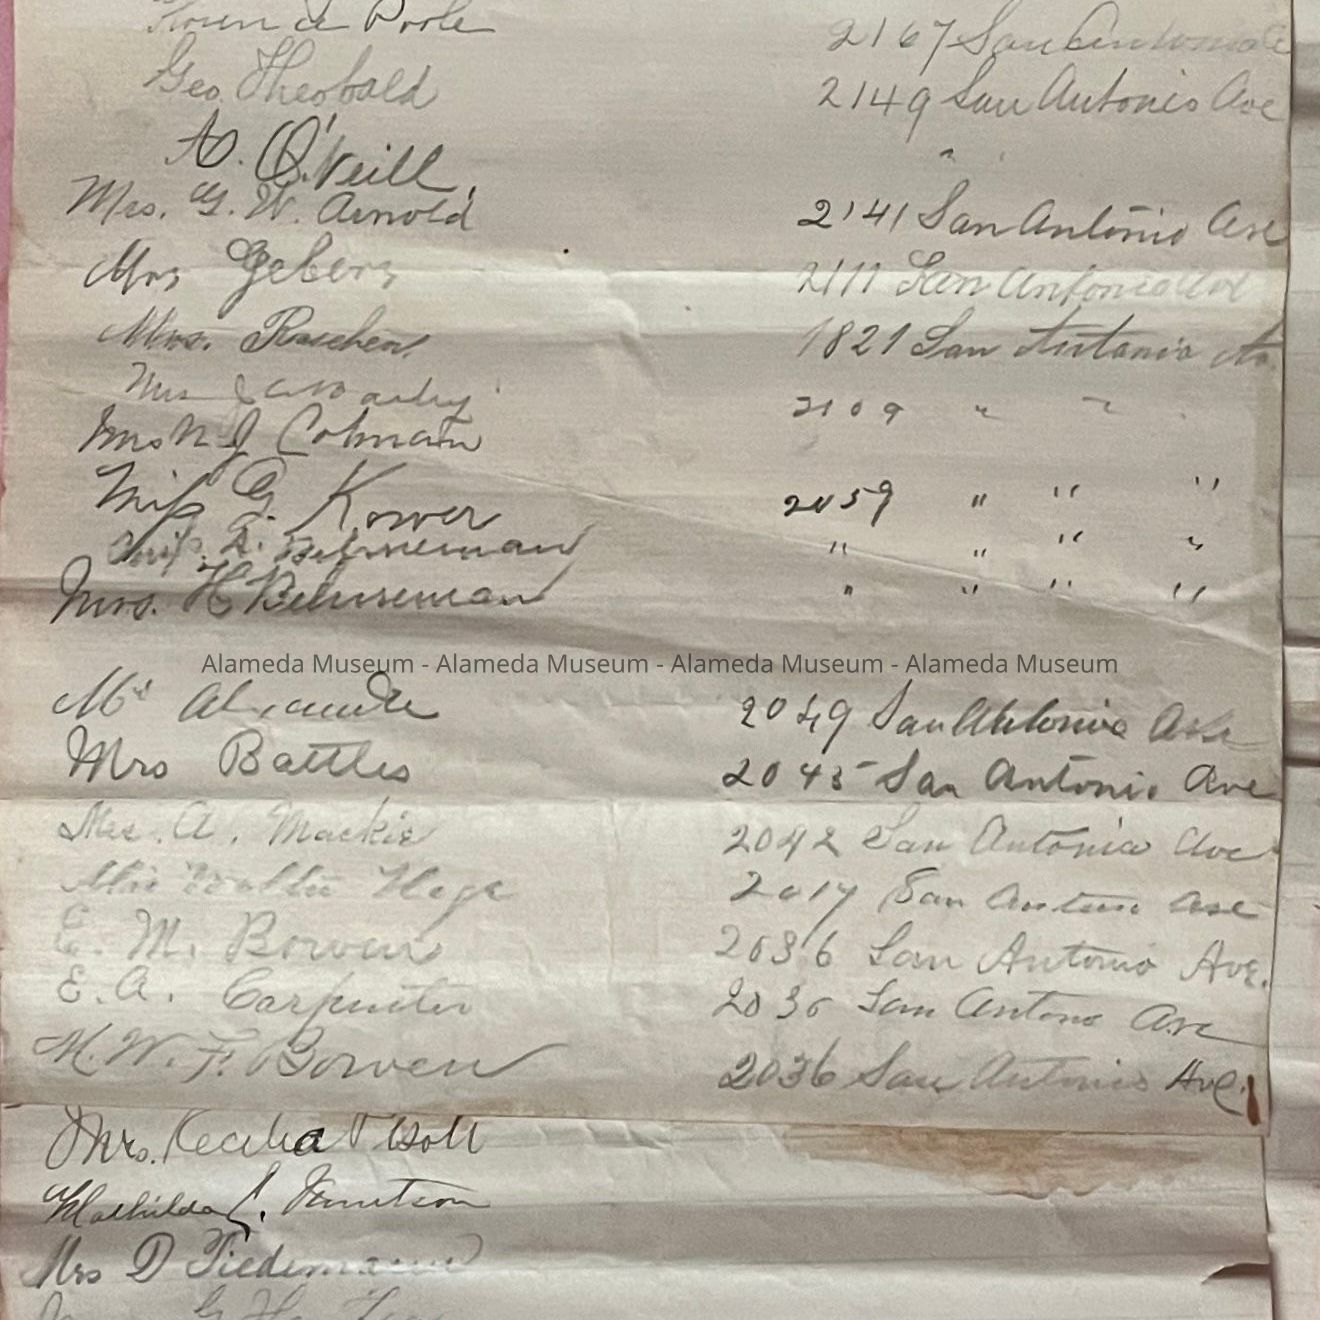 Poole 2167 San Antonio
Geo. Theobald 2149 San Antonio Ave
O'Neill, "
Mrs. G. W. Arnold 2141 San Antonio Ave
Mrs 2111 San Antonio Ave
Mrs. Raschen 1821 San Antonio Av
Mrs 2109 " "
Mrs N J Colman
Miss G. Kower 2059 " " "
Miss. Behneman " " " "
Mrs. H Behneman " " " "
Alameda Museum - Alameda Museum - Alameda Museum - Alameda Museum
2049 San Antonio Ave
Mrs Battles 2045 San Antonio Ave
Mrs. A. Mackie 2042 San Antonio Ave
2017 San Antonio Ave
E. M. Bowen 2036 San Antonio Ave.
E. A. Carpenter 2036 San Antonio Ave
M. W. F. Bowen 2036 San Antonio Ave.
Mrs. Cecilia
Mathilda Knutson
Mrs D Tiedemann